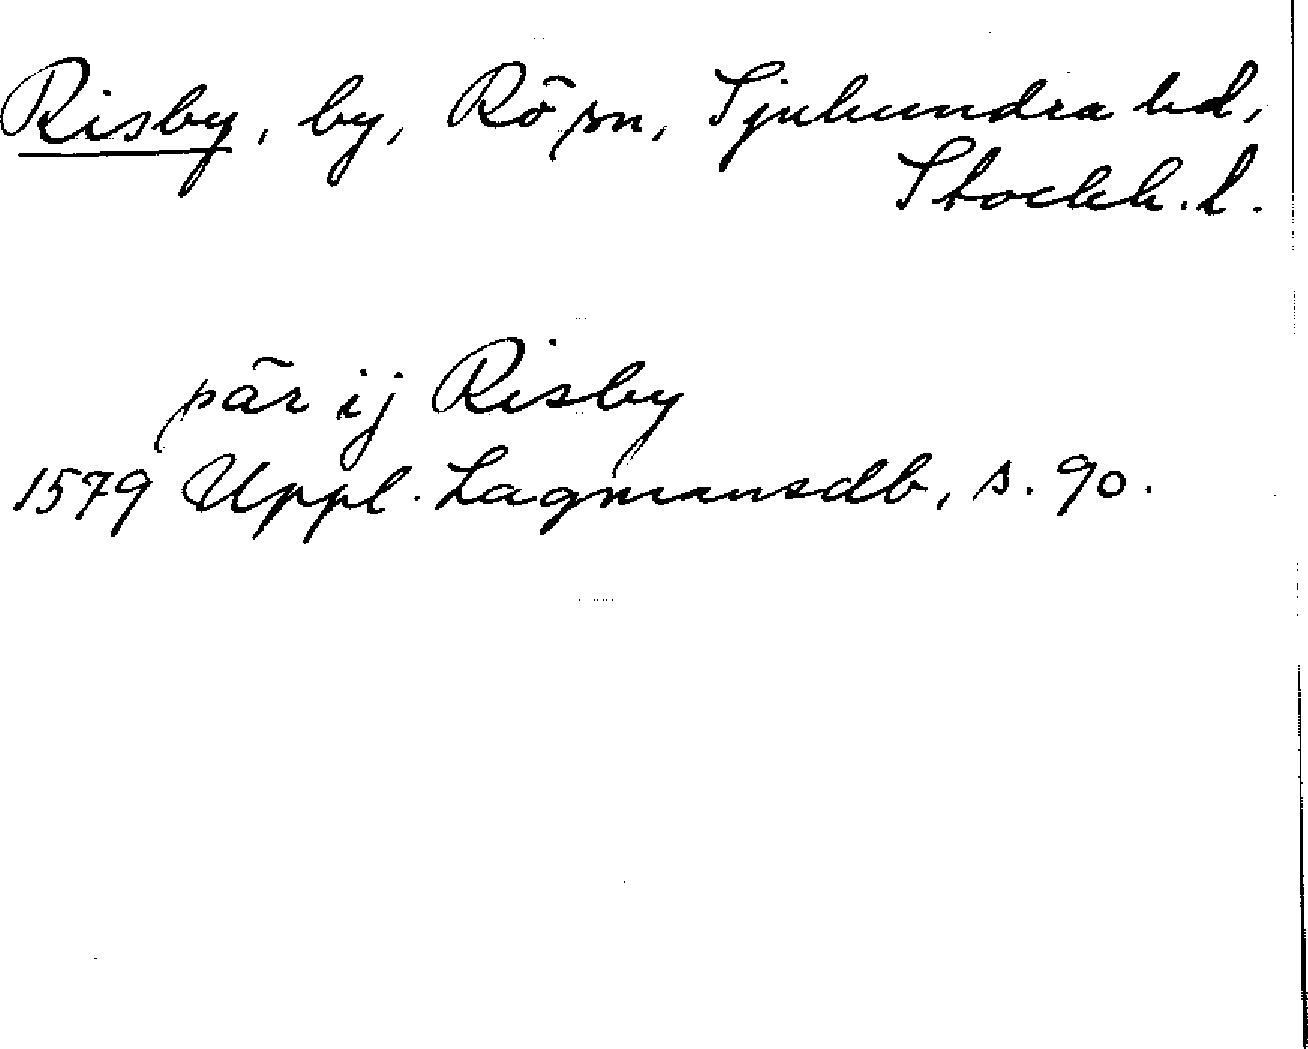 Risby, by, Rö sn, Sjuhundra hd,
Stockh. l.
pär ij Risby
1579 Uppl. Lagmansdb, s. 90.